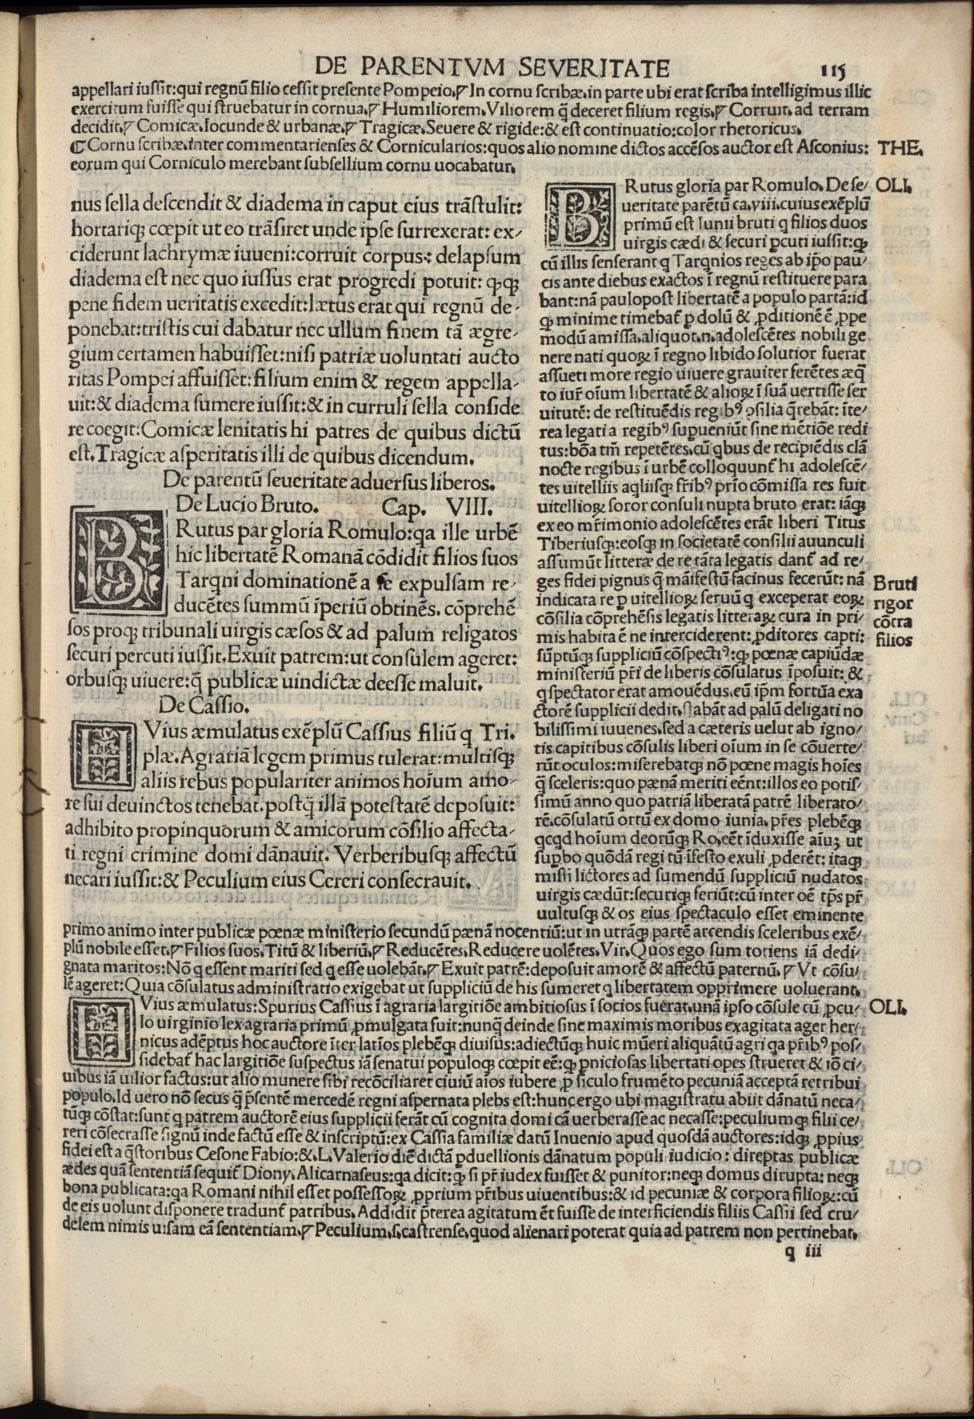 DE PARENTVM SEVERITATE 115
appellari iussit:qui regnū filio cessit presente Pompeio,⁊ In cornu scribæ,in parte ubi erat scriba intelligimus illic
exercitum fuisse qui struebatur in cornua,⁊ Humiliorem,Viliorem q̄ deceret filium regis,⁊ Corruit, ad terram
decidit,⁊ Comicæ,Iocunde & urbanæ,⁊ Tragicæ,Seuere & rigide:& est continuatio:color rhetoricus,
¶ Cornu scribæ,inter commentarienses & Cornicularios:quos alio nomine dictos accēsos auctor est Asconius: THE.
eorum qui Corniculo merebant subsellium cornu uocabatur,
nus sella descendit & diadema in caput eius trāstulit:
hortariꝗ cœpit ut eo trāsiret unde ipse surrexerat: ex-
ciderunt lachrymæ iuueni:corruit corpus: delapsum
diadema est nec quo iussus erat progredi potuit: ꝙꝗ
pene fidem ueritatis excedit:lætus erat qui regnū de-
ponebat:tristis cui dabatur nec ullum finem tā ægre-
gium certamen habuisset:nisi patriæ uoluntati aucto
ritas Pompei affuisset:filium enim & regem appella-
uit:& diadema sumere iussit:& in curruli sella conside
re coegit:Comicæ lenitatis hi patres de quibus dictū
est.Tragicæ asperitatis illi de quibus dicendum.
De parentū seueritate aduersus liberos.
De Lucio Bruto. Cap. VIII.
BRutus par gloria Romulo:qa ille urbē
hic libertatē Romanā cōdidit filios suos
Tarqni dominationē a se expulsam re-
ducētes summū īperiū obtinēs, cōprehē
sos proꝗ tribunali uirgis cæsos & ad palum religatos
securi percuti iussit.Exuit patrem:ut consulem ageret:
orbusꝗ uiuere:q̄ publicæ uindictæ deesse maluit.
De Cassio.
EIVius æmulatus exēplū Cassius filiū q Tri.
plæ.Agrariā legem primus tulerat:multisꝗ
aliis rebus populariter animos hoīum amo-
re sui deuinctos tenebat.postq̄ illā potestatē deposuit:
adhibito propinquorum & amicorum cōsilio affecta-
ti regni crimine domi dānauit. Verberibusꝗ affectū
necari iussit:& Peculium eius Cereri consecrauit.
BRutus gloria par Romulo, De se- OLI.
ueritate parētū ca,viii,cuius exēplū
primū est Iunii bruti q filios duos
uirgis cædi & securi ꝑcuti iussit:ꝙ
cū illis senserant q Tarqnios reges ab ip̄o pau-
cis ante diebus exactos ī regnū restituere para
bant:nā paulopost libertatē a populo partā:id
ꝙ minime timebat̄ ꝑ dolū & ꝓditionē ē ꝓpe
modū amissa,aliquot,n,adolescētes nobili ge
nere nati quoꝝ ī regno libido solutior fuerat
assueti more regio uiuere grauiter ferētes æq̄
to iur̄ oīum libertatē & alioꝝ ī suā uertisse ser
uitutē: de restituēdis regibꝰ ꝯsilia q̄rebāt: īte-
rea legati a regibꝰ supueniūt sine mētiōe redi
tus:bōa tm̄ repetētes,cū qbus de recipiēdis clā
nocte regibus ī urbē colloquunt̄ hi adolescē-
tes uitelliis aqliisꝗ fr̄ibꝰ pr̄io cōmissa res fuit
uitellioꝝ soror consuli nupta bruto erat: iāꝗ
ex eo mr̄imonio adolescētes erāt liberi Titus
Tiberiusꝗ:eosꝗ in societatē consilii auunculi
assumūt litteræ de re rāta legatis dant̄ ad re-
ges fidei pignus q̄ māifestū facinus fecerūt: nā Bruti
indicata re ꝑ uitellioꝝ seruū q exceperat eoꝝ rigor
cōsilia cōprehēsis legatis litteraꝝ cura in pri- cōtra
mis habita ē ne interciderent: ꝓditores capti: filios
sūptūꝗ suppliciū cōspectiꝰ:ꝙ pœnæ capiūdæ
ministeriū pr̄i de liberis cōsulatus īposuit: &
q spectator erat amouēdus,eū ip̄m fortūa exa
ctorē supplicii dedit,stabāt ad palū deligati no
bilissimi iuuenes,sed a cæteris uelut ab igno-
tis capitibus cōsulis liberi oīum in se cōuerte-
rūt oculos:miserebatꝗ nō pœne magis hoīes
q̄ sceleris:quo pœnā meriti eēnt:illos eo potis-
simū anno quo patriā liberatā patrē liberato-
rē,cōsulatū ortū ex domo iunia,pr̄es plebēꝗ
qcqd hoīum deorūꝗ Ro,eēt īduxisse aīuꝫ ut
supbo quōdā regi tū īfesto exuli ꝓderēt: itaꝗ
missi lictores ad sumendū suppliciū nudatos
uirgis cædūt:securiꝗ feriūt:cū inter oē tp̄s pr̄
uultusꝗ & os eius spectaculo esset eminente
primo animo inter publicæ pœnæ ministerio secundū pænā nocentiū:ut in utrāꝗ partē arcendis sceleribus exē-
plū nobile esset,⁊ Filios suos,Titū & liberiū,⁊ Reducētes,Reducere uolētes,Vir,Quos ego sum totiens iā dedi-
gnata maritos:Nō q essent mariti sed q esse uolebāt,⁊ Exuit patrē:deposuit amorē & affectū paternū,⁊ Vt cōsu-
lē ageret:Quia cōsulatus administratio exigebat ut suppliciū de his sumeret q libertatem opprimere uoluerant,
EIVius æmulatus:Spurius Cassius ī agraria largitiōe ambitiosus ī socios fuerat,unā ipso cōsule cū ꝓcu- OLI.
lo uirginio lex agraria primū ꝓmulgata fuit:nunq̄ deinde sine maximis moribus exagitata ager her-
nicus adēptus hoc auctore īter latīos plebēꝗ diuisus:adiectūꝗ huic mūeri aliquātū agri qa pr̄ibꝰ pos-
sidebat̄ hac largitiōe suspectus iā senatui populoꝗ cœpit eē:ꝙ ꝑniciosas libertati opes strueret & iō ci-
uibus iā uilior factus:ut alio munere sibi recōciliaret ciuiū aīos iubere ꝑ siculo frumēto pecuniā acceptā retribui
populo,Id uero nō secus q̄ p̄sentē mercedē regni aspernata plebs est:hunc ergo ubi magistratu abiit dānatū neca-
tūꝗ cōstat:sunt q patrem auctorē eius supplicii ferāt cū cognita domi cā uerberasse ac necasse:peculiumꝗ filii ce-
reri cōsecrasse signū inde factū esse & inscriptū:ex Cassia familiæ datū Inuenio apud quosdā auctores:idꝗ ꝓpius
fidei est a q̄storibus Cesone Fabio:&,L,Valerio diē dictā ꝑduellionis dānatum populi iudicio: direptas publicæ
ædes quā sententiā sequit̄ Diony,Alicarnaseus:qa dicit:ꝙ si pr̄ iudex fuisset & punitor:neꝗ domus dirupta: neꝗ
bona publicata:qa Romani nihil esset possessoꝝ ꝓprium pr̄ibus uiuentibus:& id pecuniæ & corpora filioꝝ:cū
de eis uolunt disponere tradunt̄ patribus,Addidit p̄terea agitatum ēt fuisse de interficiendis filiis Cassii sed cru-
delem nimis uisam eā sententiam,⁊ Peculium,s,castrense,quod alienari poterat quia ad patrem non pertinebat,
q iii